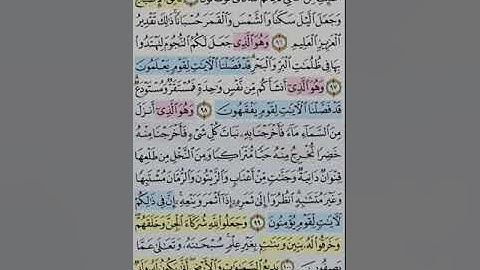 وَجَعَلَ ٱلَّيۡلَ سَكَنٗا وَٱلشَّمۡسَ وَٱلۡقَمَرَ حُسۡبَانٗاۚ ذَٰلِكَ تَقۡدِيرُ
ٱلۡعَزِيزِ ٱلۡعَلِيمِ ٩٦ وَهُوَ ٱلَّذِي جَعَلَ لَكُمُ ٱلنُّجُومَ لِتَهۡتَدُواْ
بِهَا فِي ظُلُمَٰتِ ٱلۡبَرِّ وَٱلۡبَحۡرِۗ قَدۡ فَصَّلۡنَا ٱلۡأٓيَٰتِ لِقَوۡمٖ يَعۡلَمُونَ
٩٧ وَهُوَ ٱلَّذِيٓ أَنشَأَكُم مِّن نَّفۡسٖ وَٰحِدَةٖ فَمُسۡتَقَرّٞ وَمُسۡتَوۡدَعٞۗ
قَدۡ فَصَّلۡنَا ٱلۡأٓيَٰتِ لِقَوۡمٖ يَفۡقَهُونَ ٩٨ وَهُوَ ٱلَّذِيٓ أَنزَلَ
مِنَ ٱلسَّمَآءِ مَآءٗ فَأَخۡرَجۡنَا بِهِۦ نَبَاتَ كُلِّ شَيۡءٖ فَأَخۡرَجۡنَا مِنۡهُ
خَضِرٗا نُّخۡرِجُ مِنۡهُ حَبّٗا مُّتَرَاكِبٗا وَمِنَ ٱلنَّخۡلِ مِن طَلۡعِهَا
قِنۡوَانٞ دَانِيَةٞ وَجَنَّٰتٖ مِّنۡ أَعۡنَابٖ وَٱلزَّيۡتُونَ وَٱلرُّمَّانَ مُشۡتَبِهٗا
وَغَيۡرَ مُتَشَٰبِهٍۗ ٱنظُرُوٓاْ إِلَىٰ ثَمَرِهِۦٓ إِذَآ أَثۡمَرَ وَيَنۡعِهِۦٓۚ إِنَّ فِي ذَٰلِكُمۡ
لَأٓيَٰتٖ لِّقَوۡمٖ يُؤۡمِنُونَ ٩٩ وَجَعَلُواْ لِلَّهِ شُرَكَآءَ ٱلۡجِنَّ وَخَلَقَهُمۡۖ
وَخَرَقُواْ لَهُۥ بَنِينَ وَبَنَٰتِۭ بِغَيۡرِ عِلۡمٖۚ سُبۡحَٰنَهُۥ وَتَعَٰلَىٰ عَمَّا
يَصِفُونَ ١٠٠ بَدِيعُ ٱلسَّمَٰوَٰتِ وَٱلۡأَرۡضِۖ أَنَّىٰ يَكُونُ لَهُۥ